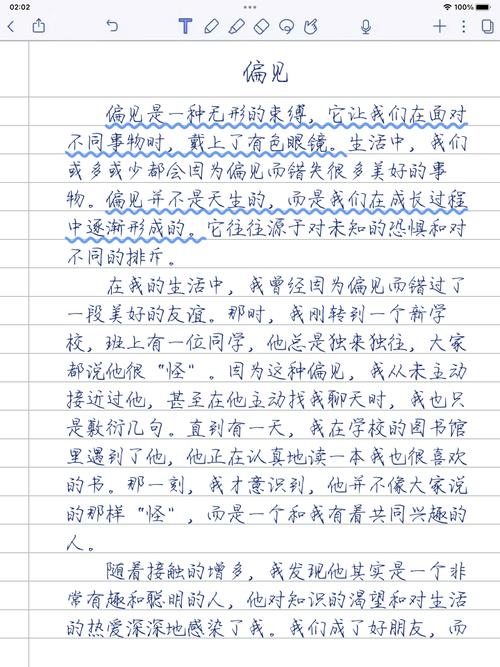 02:02
100%
偏见
偏见是一种无形的束缚，它让我们在面对
不同事物时，戴上了有色眼镜。生活中，我们
或多或少都会因为偏见而错失很多美好的事
物。偏见并不是天生的，而是我们在成长过程
中逐渐形成的。它往往源于对未知的恐惧和对
不同的排斥。
在我的生活中，我曾经因为偏见而错过了
一段美好的友谊。那时，我刚转到一个新学
校，班上有一位同学，他总是独来独往，大家
都说他很“怪”。因为这种偏见，我从未主动
接近过他，甚至在他主动找我聊天时，我也只
是敷衍几句。直到有一天，我在学校的图书馆
里遇到了他，他正在认真地读一本我也很喜欢
的书。那一刻，我才意识到，他并不像大家说
的那样“怪”，而是一个和我有着共同兴趣的
人。
随着接触的增多，我发现他其实是一个非
常有趣和聪明的人，他对知识的渴望和对生活
的热爱深深地感染了我。我们成了好朋友，而